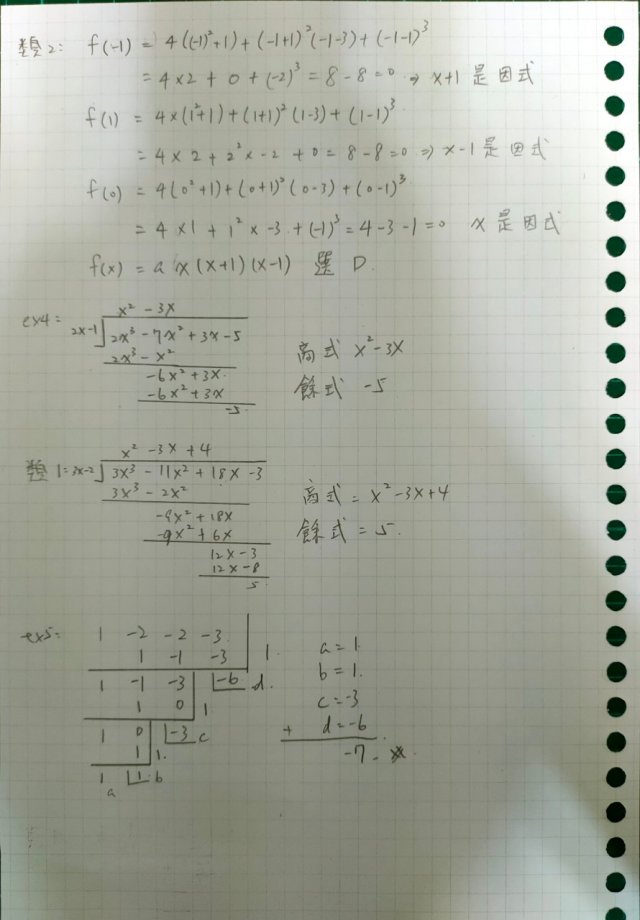 類2: f(-1) = 4((-1)²+1) + (-1+1)²(-1-3) + (-1-1)³
= 4×2 + 0 + (-2)³ = 8-8=0 ⇒ x+1 是因式
f(1) = 4×(1²+1) + (1+1)²(1-3) + (1-1)³
= 4×2 + 2²×-2 + 0 = 8-8=0 ⇒ x-1 是因式
f(0) = 4(0²+1) + (0+1)²(0-3) + (0-1)³
= 4×1 + 1²×-3 + (-1)³ = 4-3-1=0 x 是因式
f(x) = a x (x+1)(x-1) 選 D
ex4:
x² - 3x
2x-1 2x³ - 7x² + 3x - 5
2x³ - x²
-6x² + 3x
-6x² + 3x
-5
商式 x²-3x
餘式 -5
類1:
x² - 3x + 4
3x-2 3x³ - 11x² + 18x - 3
3x³ - 2x²
-9x² + 18x
-9x² + 6x
12x - 3
12x - 8
5
商式 = x²-3x+4
餘式 = 5.
ex5:
1 -2 -2 -3
1 -1 -3 1
1 -1 -3 -6 d
1 0 1
1 0 -3 c
1 1
1 1 b
a
a = 1
b = 1.
c = -3
+ d = -6
-7